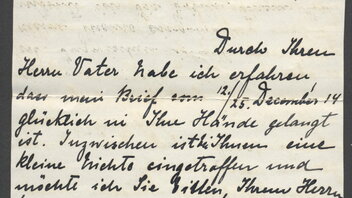 Durch Ihren
Herrn Vater habe ich erfahren,
dass mein Brief vom 12/25. December 14
glücklich in Ihre Hände gelangt
ist. Inzwischen ist Ihnen eine
kleine Nichte eingetroffen und
möchte ich Sie bitten, Ihrem Herrn